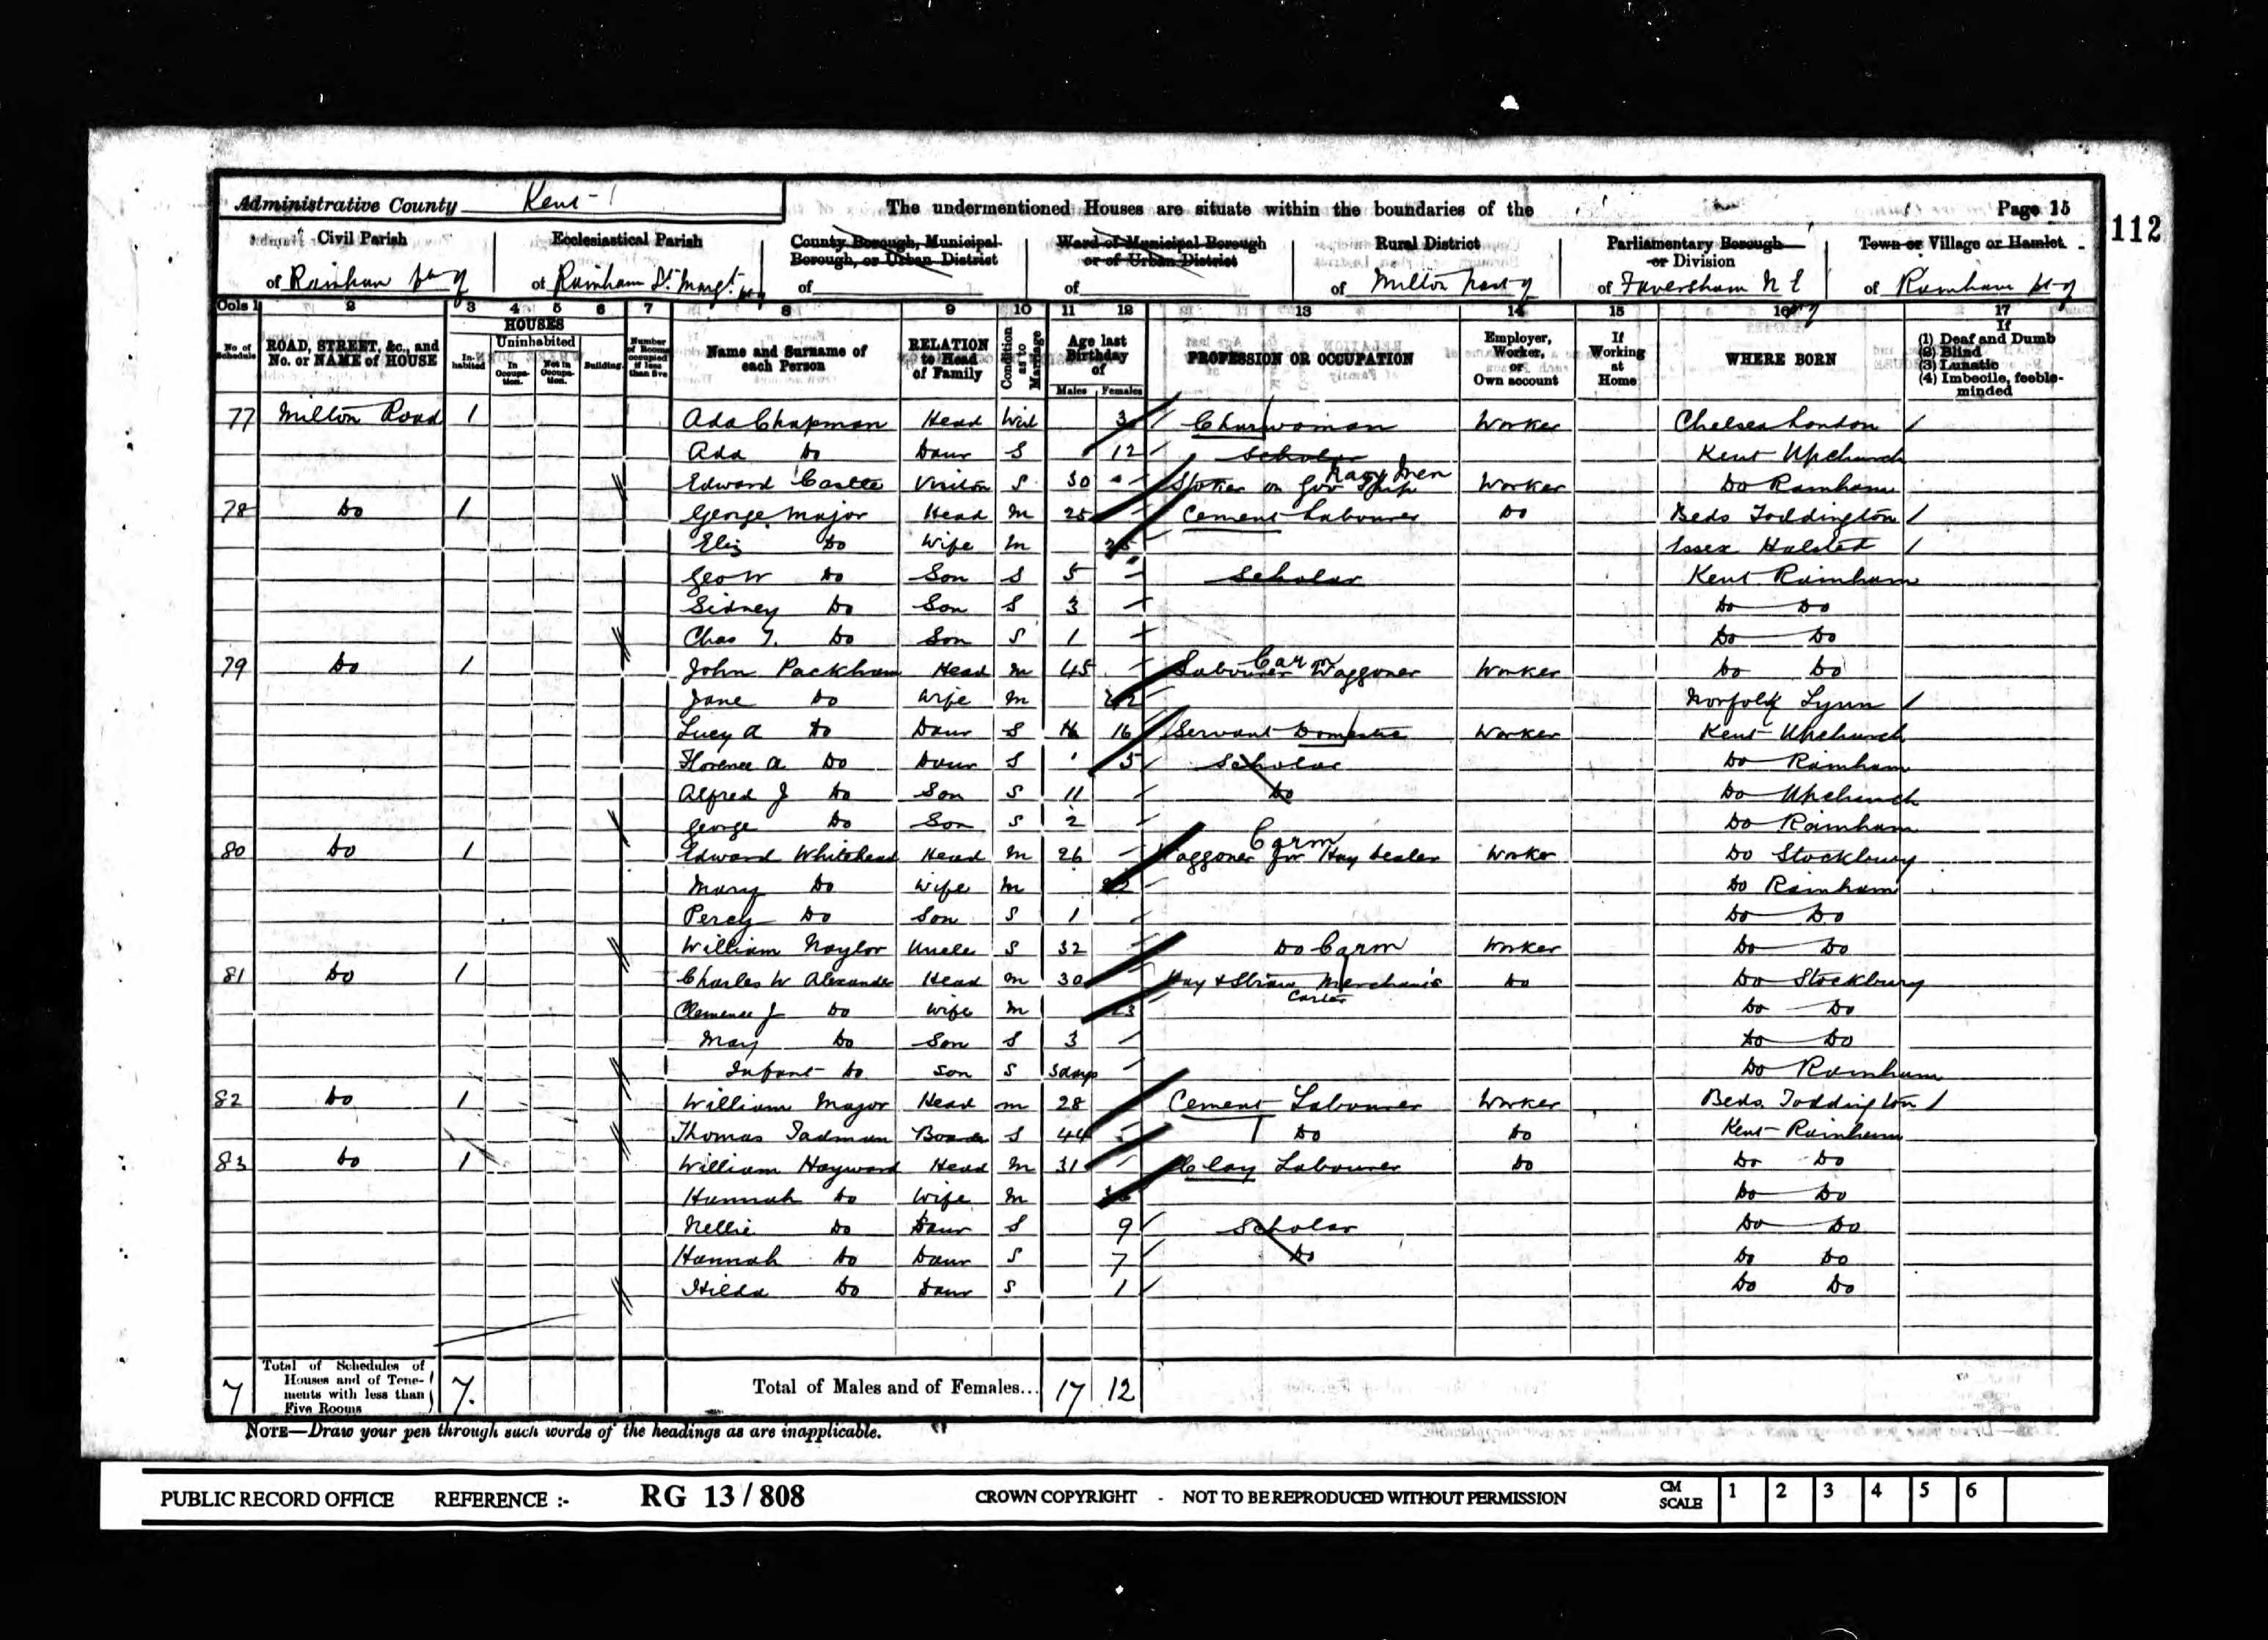 Administrative County Kent
The undermentioned Houses are situate within the boundaries of the
Page 15
112
Civil Parish of Rainham
Ecclesiastical Parish of Rainham St. Margt.
County Borough, Municipal Borough, or Urban District of
Ward of Municipal Borough or of Urban District of
Rural District of Milton
Parliamentary Borough or Division of Faversham N E
Town or Village or Hamlet of Rainham
Cols 1 2 3 4 5 6 7 8 9 10 11 12 13 14 15 16 17
No. of Schedule
ROAD, STREET, &c., and No. or NAME of HOUSE
HOUSES
Inhabited
Uninhabited
In Occupation.
Not in Occupation.
Building.
Number of Rooms occupied if less than five
Name and Surname of each Person
RELATION to Head of Family
Condition as to Marriage
Age last Birthday of
Males Females
PROFESSION OR OCCUPATION
Employer, Worker, or Own account
If Working at Home
WHERE BORN
If (1) Deaf and Dumb (2) Blind (3) Lunatic (4) Imbecile, feeble-minded
77 Milton Road 1 Ada Chapman Head Wid Charwoman Worker Chelsea London
Ada Do Daur S 12 Scholar Kent Upchurch
Edward Castle Visitor S 30 Stoker on Gov Ship Navy Men Worker Do Rainham
78 Do 1 George Major Head M 25 Cement Labourer Do Beds Toddington
Eliz Do Wife M Essex Halsted
Geo W Do Son S 5 Scholar Kent Rainham
Sidney Do Son S 3 Do Do
Chas T. Do Son S 1 Do Do
79 Do 1 John Packham Head M 45 Labourer Waggoner Carm Worker Do Do
Jane Do Wife M Norfolk Lynn
Lucy A Do Daur S 16 Servant Domestic Worker Kent Upchurch
Florence A Do Daur S 5 Scholar Do Rainham
Alfred J Do Son S 11 Do Do Upchurch
George Do Son S 2 Do Rainham
80 Do 1 Edward Whitehead Head M 26 Waggoner for Hay Dealer Carm Worker Do Stockbury
Mary Do Wife M Do Rainham
Percy Do Son S 1 Do Do
William Naylor Uncle S 32 Do Carm Worker Do Do
81 Do 1 Charles W Alexander Head M 30 Hay & Straw Merchant's Carter Do Do Stockbury
Clemence J Do Wife M 23 Do Do
May Do Son S 3 Do Do
Infant Do Son S 3 days Do Rainham
82 Do 1 William Major Head M 28 Cement Labourer Worker Beds. Toddington
Thomas Tadman Boarder S 44 Do Do Kent Rainham
83 Do 1 William Hayward Head M 31 Clay Labourer Do Do Do
Hannah Do Wife M Do Do
Nellie Do Daur S 9 Scholar Do Do
Hannah Do Daur S 7 Do Do Do
Hilda Do Daur S 1 Do Do
7 Total of Schedules of Houses and of Tenements with less than Five Rooms 7. Total of Males and of Females... 17 12
NOTE—Draw your pen through such words of the headings as are inapplicable.
PUBLIC RECORD OFFICE REFERENCE :- RG 13 / 808 CROWN COPYRIGHT - NOT TO BE REPRODUCED WITHOUT PERMISSION CM SCALE 1 2 3 4 5 6